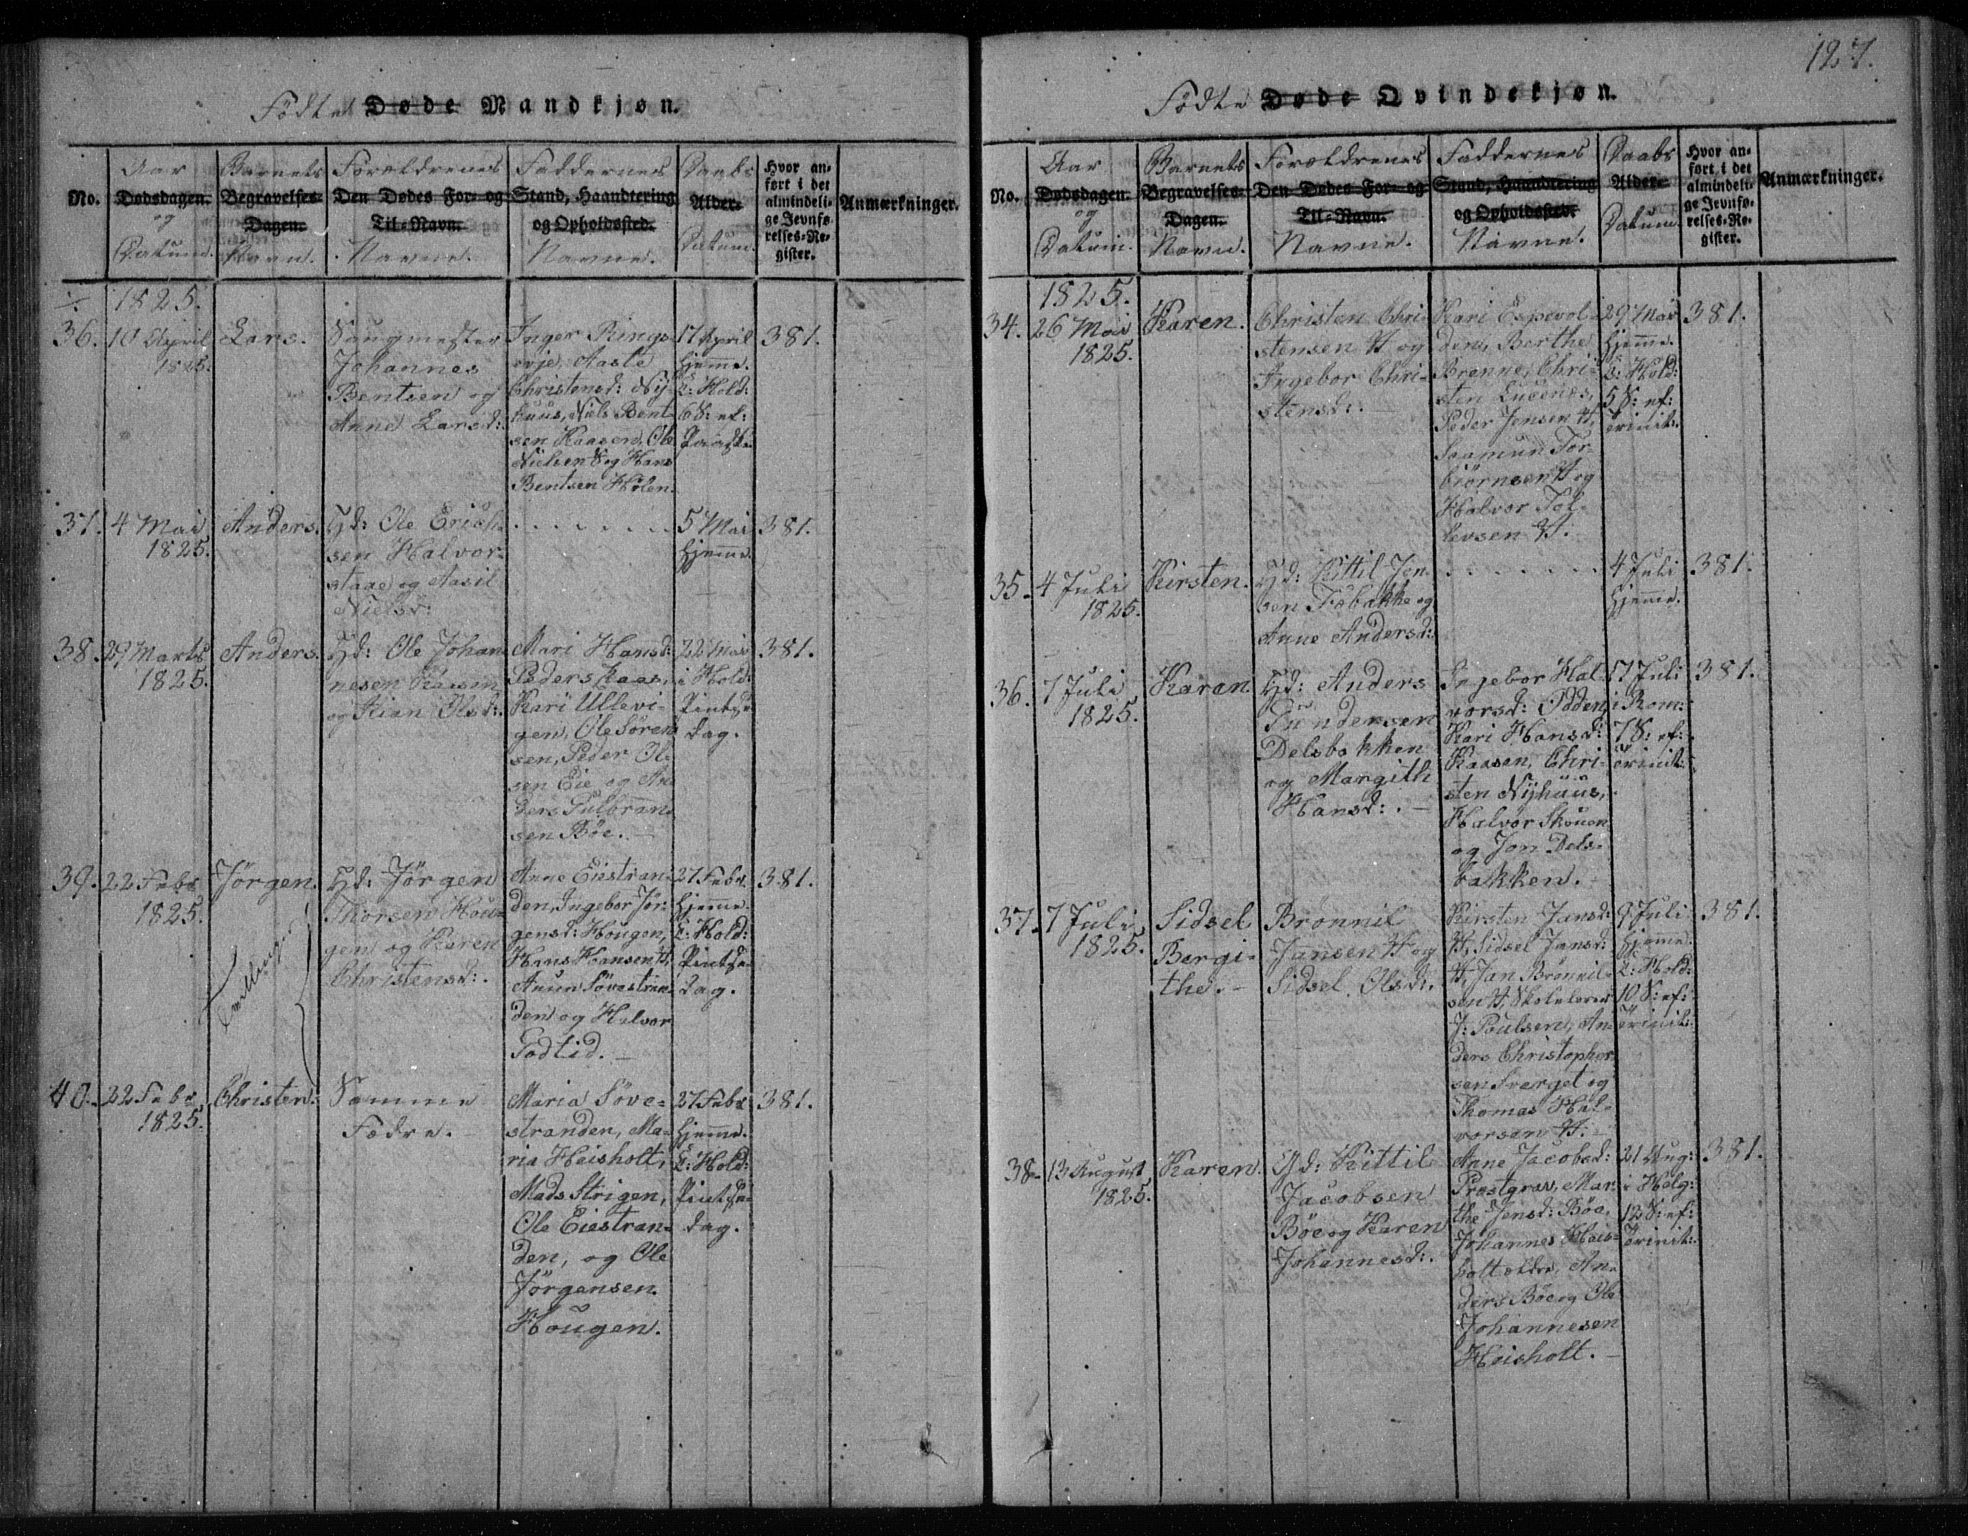 Fødte Døde Mandkjøn.
No.
Aar
Dødsdagen.
og
Datum.
Barnets
Begravelses-
Dagen.
Navn.
Forældrenes
Den Dødes For- og
Til-Navn.
Navne.
Faddernes
Stand, Haandtering
og Opholdssted.
Navne.
Daabs
Alder.
Datum.
Hvor an-
ført i det
almindeli-
ge Jevnfø-
relses-Re-
gister.
Anmærkninger.
1825.
36.
10 April
1825.
Lars.
Saugmester
Johannes
Bentsen og
Anne Larsd:
Inger Rings-
evje, Aaste
Christensd: Nÿ-
huus, Niels Bent-
sen Kaasen, Ole
Nielsen S og Hans
Bentsen Holen.
17 April
hjemme.
C: Hold:
6 S: ef:
Paaske
381.
37.
4 Mai
1825.
Anders.
Gd: Ole Erich-
sen Halvor-
staae og Aasil
Nielsd:
5 Mai
hjemme.
381.
38.
29 Marts
1825.
Anders.
Gd: Ole Johan
nesen Kaasen
og Kian Olsd:
Mari Hansd:
Peders Kaas,
Kari Ullevi-
gen, Ole Sören
sen, Peder Ol-
sen Eie og An-
ders Gulbran
sen Böe.
22 Mai
i Hold:
Pintse
dag.
381.
39.
22 Febr.
1825.
Jörgen.
Tvillinger
Gd: Jörgen
Thorsen Hou-
gen og Karen
Christensd:.
Anne Eiestran-
den, Ingebor Jør-
gensd: Hougen,
Hans Hansen H,
Anun Sövestran-
den og Halvor
Todtid.
27 Febr.
hjemme.
C: Hold:
Pintse-
dag.
381.
40.
22 Febr.
1825.
Christen.
Samme
Fædre.
Maria Söve-
stranden, Ma-
ria Heisholt,
Mads Strigen,
Ole Eiestran-
den, og Ole
Jörgensen
Hougen.
27 Febr.
hjemme.
C: Hold:
Pintse-
dag.
381.
127.
Fødte Døde Qvindekjøn.
No.
Aar
Dødsdagen.
og
Datum.
Barnets
Begravelses-
Dagen.
Navn.
Forældrenes
Den Dødes For- og
Til-Navn.
Navne.
Faddernes
Stand, Haandtering
og Opholdssted.
Navne.
Daabs
Alder.
Datum.
Hvor an-
ført i det
almindeli-
ge Jevnfø-
relses-Re-
gister.
Anmærkninger.
1825.
34.
26 Mai
1825.
Karen.
Christen Chri-
stensen H og
Ingebor Chri-
stensd:.
Kari Espevol-
den, Berthe
Brenne, Chri-
sten Lucenes,
Peder Jensen H,
Saamun Tor-
biörnsen H og
Halvor Tol-
levsen H.
29 Mai
hjemme.
C: Hold:
5 S: ef:
Trinit:
381.
35.
4 Juli
1825.
Kirsten.
Gd: Kittil Jen-
sen Fobakke og
Anne Andersd:
4 Juli
hjemme.
381.
36.
7 Juli
1825.
Karan.
Gd: Anders
Gundersen
Delsbakken
og Margith
Hansd:.
Ingebor Hal-
vorsd: Odden,
Kari Hansd:
Kaasen, Chri-
sten Nÿhuus,
Halvor Skouen
og Jon Dels-
bakken.
17 Juli
i Rom:
7 S: ef:
Trinit:
381.
37.
7 Juli
1825.
Sidsel
Bergi-
the.
Brönnil
Jansen H og
Sidsel Olsd:.
Kirsten Jansd:
H, Sidsel Jansd:
H, Jan Brönnil-
sen H, Skolelærer
J: Poulsen, An-
ders Christopher
sen Sverget og
Thomas Hal-
vorsen H.
9 Juli
hjemme.
C: Hold:
10 S: ef:
Trinit:
381.
38.
13 August
1825.
Karen.
Gd: Kittil
Jacobsen
Böe og Karen
Johannesd:.
Anne Jacobsd:
Præstgrav, Mar-
the Jensd: Böe,
Johannes Heis-
holt ældre, An-
ders Böe og Ole
Johannesen
Heisholt.
21 Aug:
i Helg:
12 S: ef:
Trinit:
381.